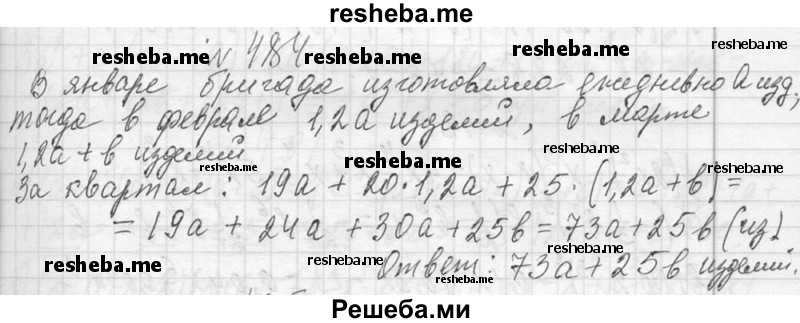 resheba.me
№ 484
resheba.me resheba.me
В январе бригада изготовляла ежедневно a изд.,
тогда в феврале 1,2a изделий, в марте
1,2a + в изделий
resheba.me resheba.me resheba.me
За квартал: 19a + 20·1,2a + 25·(1,2a+в) =
= 19a + 24a + 30a + 25в = 73a + 25в (из)
resheba.me resheba.me resheba.me
Ответ: 73a + 25в изделий.
Решеба.ми